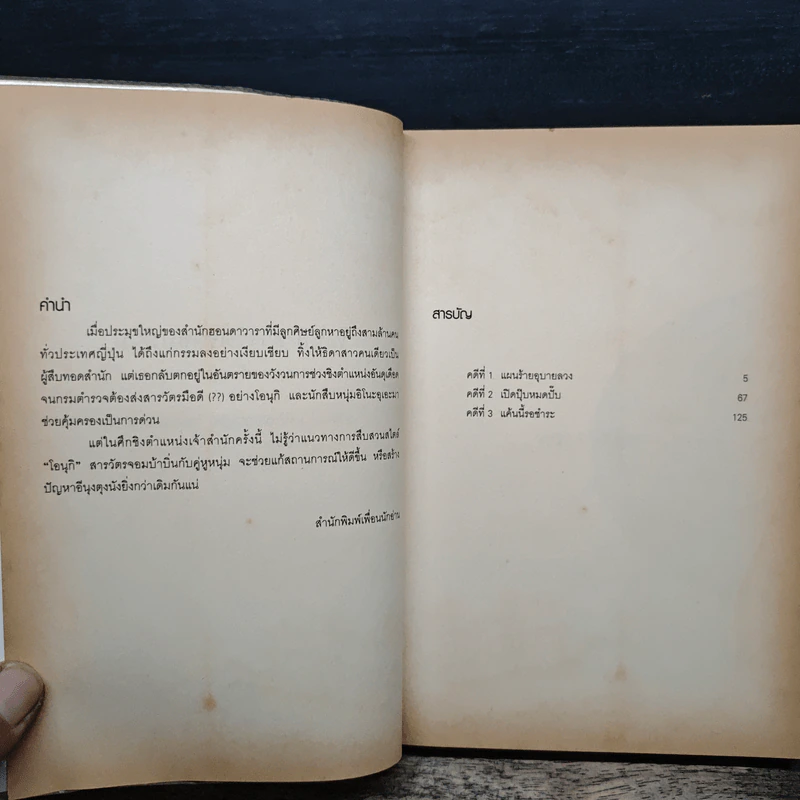 คำนำ
เมื่อประมุขใหญ่ของสำนักฮอนดาวาราที่มีลูกศิษย์ลูกหาอยู่ถึงสามล้านคน
ทั่วประเทศญี่ปุ่น ได้ถึงแก่กรรมลงอย่างเงียบเชียบ ทิ้งให้ธิดาสาวคนเดียวเป็น
ผู้สืบทอดสำนัก แต่เธอกลับตกอยู่ในอันตรายของวังวนการช่วงชิงตำแหน่งอันดุเดือด
จนกรมตำรวจต้องส่งสารวัตรมือดี (??) อย่างโอนุกิ และนักสืบหนุ่มอิโนะอุเอะมา
ช่วยคุ้มครองเป็นการด่วน
แต่ในศึกชิงตำแหน่งเจ้าสำนักครั้งนี้ ไม่รู้ว่าแนวทางการสืบสวนสไตล์
“โอนุกิ” สารวัตรจอมบ้าบิ่นกับคู่หูหนุ่ม จะช่วยแก้สถานการณ์ให้ดีขึ้น หรือสร้าง
ปัญหาอีนุงตุงนังยิ่งกว่าเดิมกันแน่
สำนักพิมพ์เพื่อนนักอ่าน
สารบัญ
คดีที่ 1 แผนร้ายอุบายลวง 5
คดีที่ 2 เปิดปุ๊บหมดปั๊บ 67
คดีที่ 3 แค้นนี้รอชำระ 125